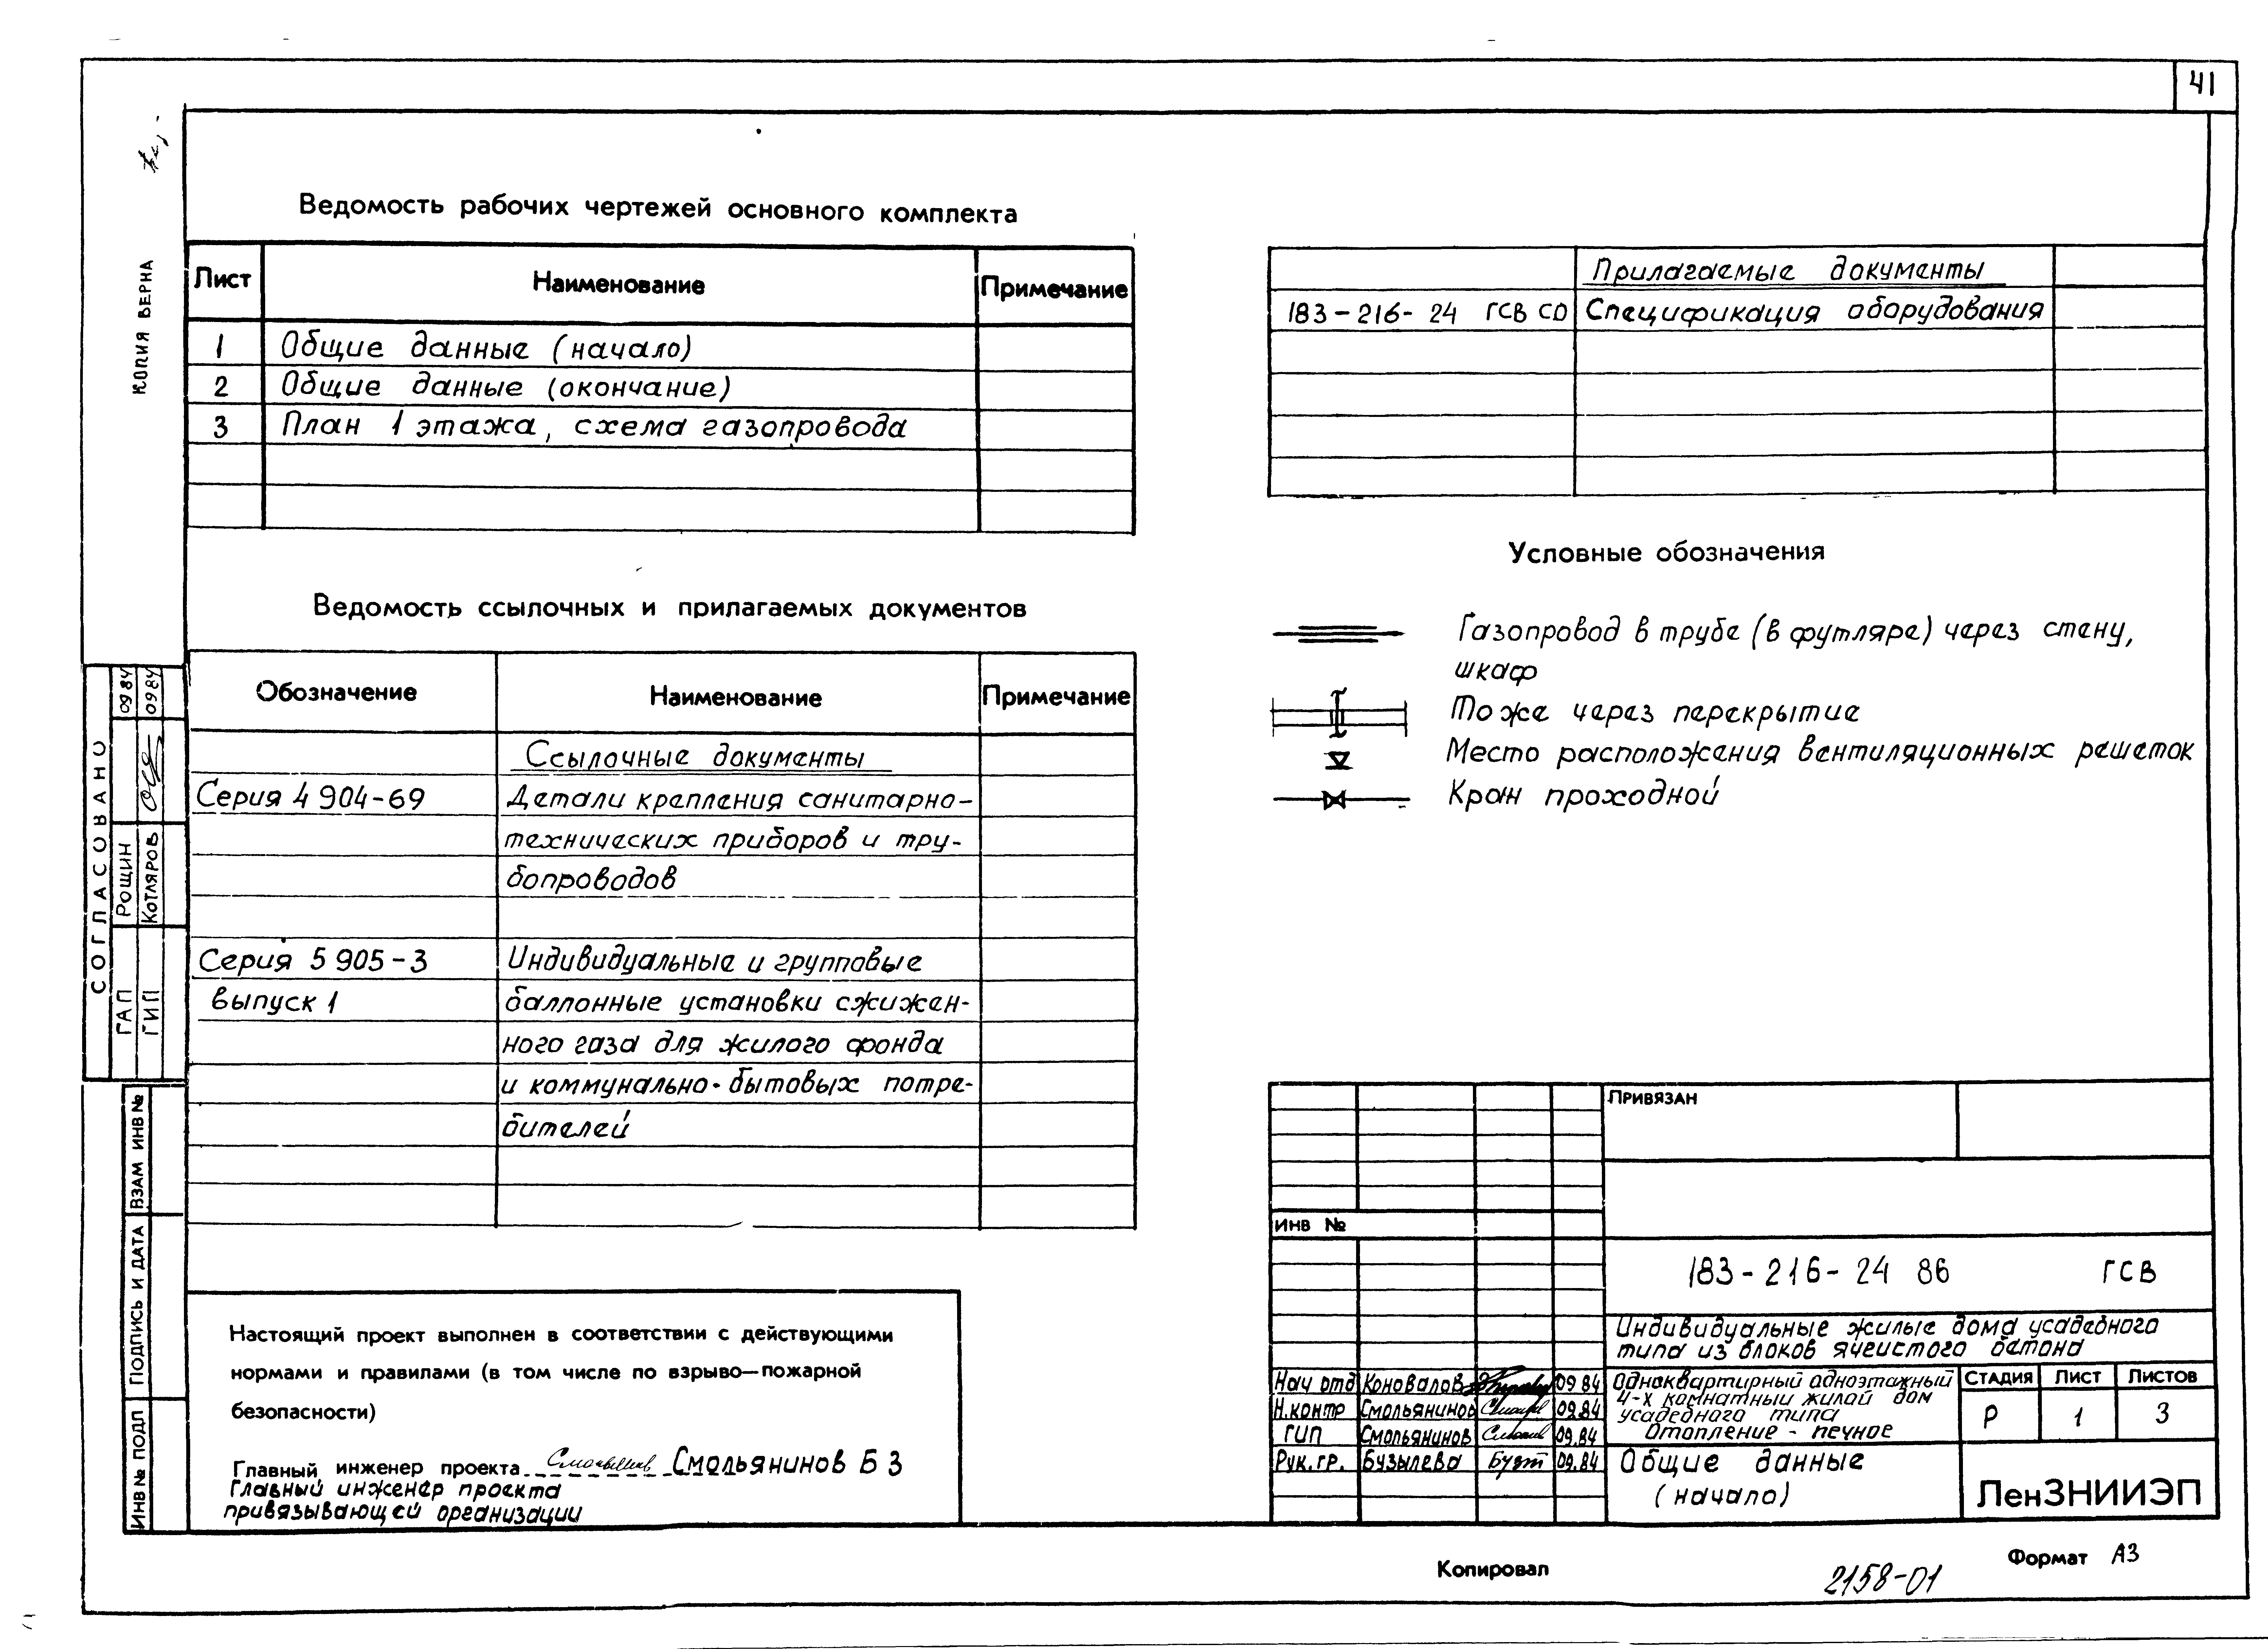 41
КОПИЯ ВЕРНА
Ведомость рабочих чертежей основного комплекта
Лист Наименование Примечание
1 Общие данные (начало)
2 Общие данные (окончание)
3 План 1 этажа, схема газопровода
Ведомость ссылочных и прилагаемых документов
Обозначение Наименование Примечание
Ссылочные документы
Серия 4 904-69 Детали крепления санитарно-
технических приборов и тру-
бопроводов
Серия 5 905-3 Индивидуальные и групповые
выпуск 1 баллонные установки сжижен-
ного газа для жилого фонда
и коммунально-бытовых потре-
бителей
Прилагаемые документы
183-216-24 ГСВ СО Спецификация оборудования
Условные обозначения
Газопровод в трубе (в футляре) через стену,
шкаф
То же через перекрытие
Место расположения вентиляционных решеток
Кран проходной
СОГЛАСОВАНО
ГАП Рощин 09 84
ГИП Котляров 09 84
ВЗАМ ИНВ №
ПОДПИСЬ И ДАТА
ИНВ № ПОДЛ
Настоящий проект выполнен в соответствии с действующими
нормами и правилами (в том числе по взрыво—пожарной
безопасности)
Главный инженер проекта Смольянинов Б З
Главный инженер проекта
привязывающей организации
Привязан
ИНВ №
183-216-24 86 ГСВ
Индивидуальные жилые дома усадебного
типа из блоков ячеистого бетона
Нач отд Коновалов 09 84
Н.контр Смольянинов 09.84
ГИП Смольянинов 09.84
Рук.гр. Бузылева 09.84
Одноквартирный одноэтажный
4-х комнатный жилой дом
усадебного типа
Отопление - печное
Стадия Лист Листов
Р 1 3
Общие данные
(начало)
ЛенЗНИИЭП
Копировал
Формат А3
2158-01